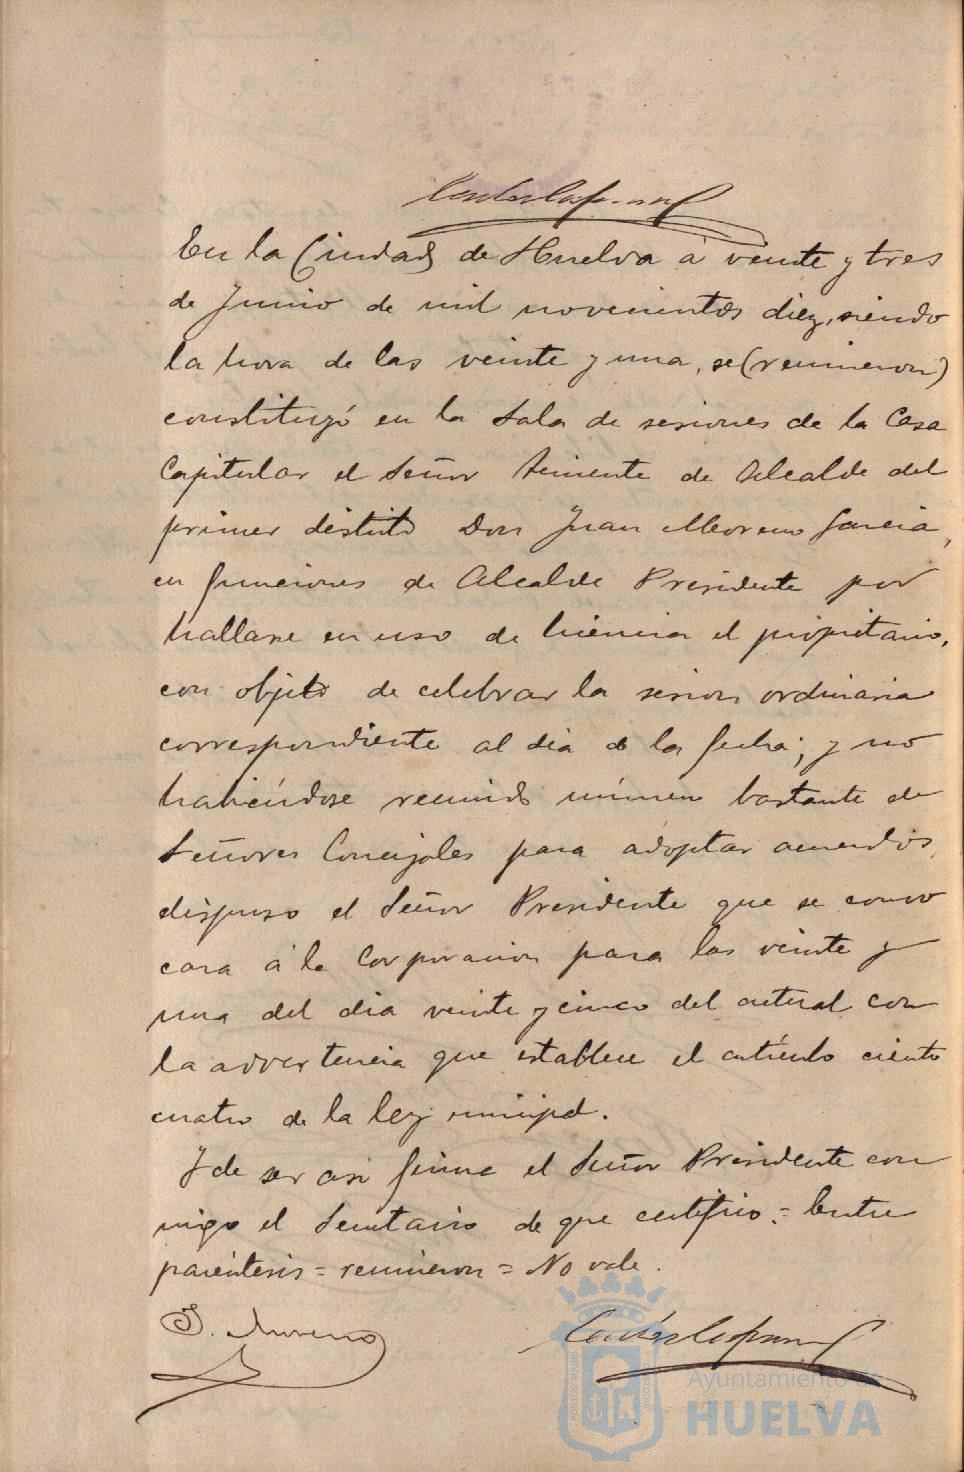 En la Ciudad de Huelva á veinte y tres
de Junio de mil novecientos diez, siendo
la hora de las veinte y una, se (reunieron)
constituyó en la Sala de sesiones de la Casa
Capitular el Señor Teniente de Alcalde del
primer distrito Don Juan Moreno García,
en funciones de Alcalde Presidente por
hallarse en uso de licencia el propietario,
con objeto de celebrar la sesion ordinaria
correspondiente al dia de la fecha; y no
habiéndose reunido número bastante de
Señores Concejales para adoptar acuerdos,
dispuso el Señor Presidente que se convo
cara á la Corporacion para las veinte y
una del dia veinte y cinco del actual con
la advertencia que establece el artículo ciento
cuatro de la ley municipal.
Y de ser asi firma el Señor Presidente con
migo el Secretario de que certifico. = Entre
paréntesis = reunieron = No vale.
J. Moreno
Ayuntamiento de
HUELVA